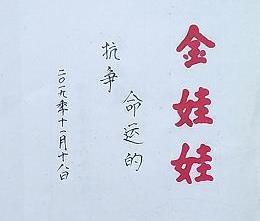 金娃娃
命运的
抗争
二〇一九年十一月十八日